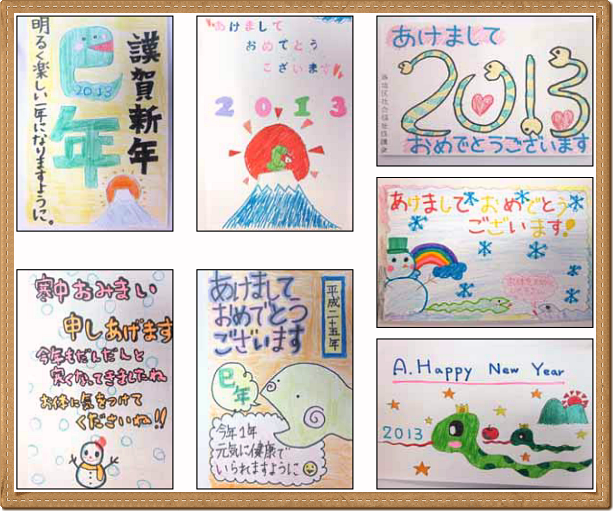 謹賀新年
巳年
2013
明るく楽しい一年になりますように。
あけまして
おめでとう
ございます!!
2013
あけまして
2013
おめでとうございます
あけまして おめでとう
ございます!
寒中おみまい
申しあげます
今年もだんだんと
寒くなってきましたね
お体に気をつけて
くださいね!!
あけまして
おめでとう
ございます
平成二十五年
巳年
今年1年
元気に健康で
いられますように
A.Happy New Year
2013